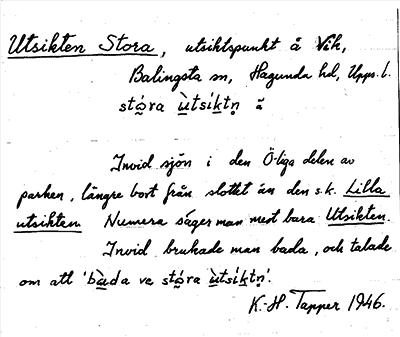 Utsikten Stora, utsiktspunkt å Vik,
Balingsta sn, Hagunda hd, Upps. l.
stó̱ra ù̱tsík̮tn̥ å
Invid sjön i den Ö-liga delen av
parken, längre bort från slottet än den s.k. Lilla
utsikten. Numera säger man mest bara Utsikten.
Invid brukade man bada, och talade
om att 'bà̱da ve stó̱ra ù̱tsík̮tn̥'.
K.-H. Tapper 1946.